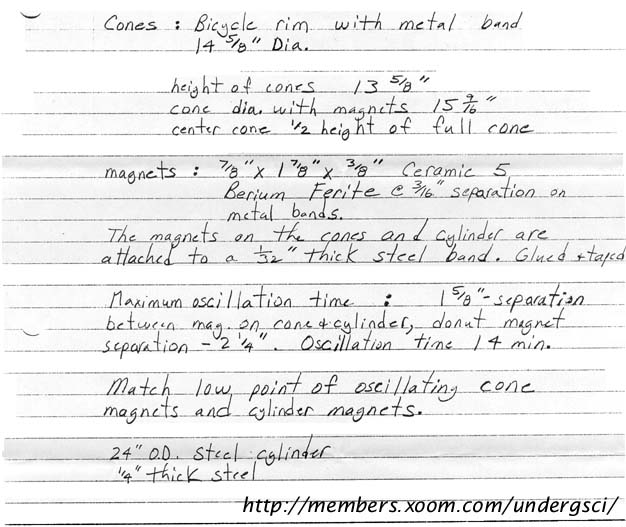 Cones : Bicycle rim with metal band
14 5/8" Dia.
height of cones 13 5/8"
cone dia. with magnets 15 9/16"
center cone 1/2 height of full cone
magnets : 7/8" x 1 7/8" x 3/8" Ceramic 5
Berium Ferite @ 3/16" separation on
metal bands.
The magnets on the cones and cylinder are
attached to a 1/32" thick steel band. Glued + taped
Maximum oscillation time : 1 5/8"-separation
between mag. on cone + cylinder, donut magnet
separation - 2 1/4". Oscillation time 14 min.
Match low point of oscillating cone
magnets and cylinder magnets.
24" O.D. steel cylinder
1/4" thick steel
http://members.xoom.com/undergsci/